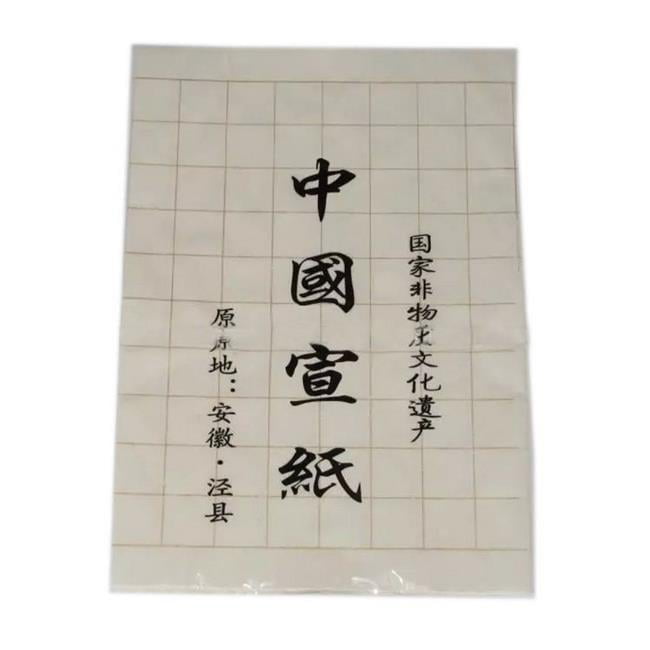 国家非物文化遺产
中國宣紙
原地：安徽·泾县